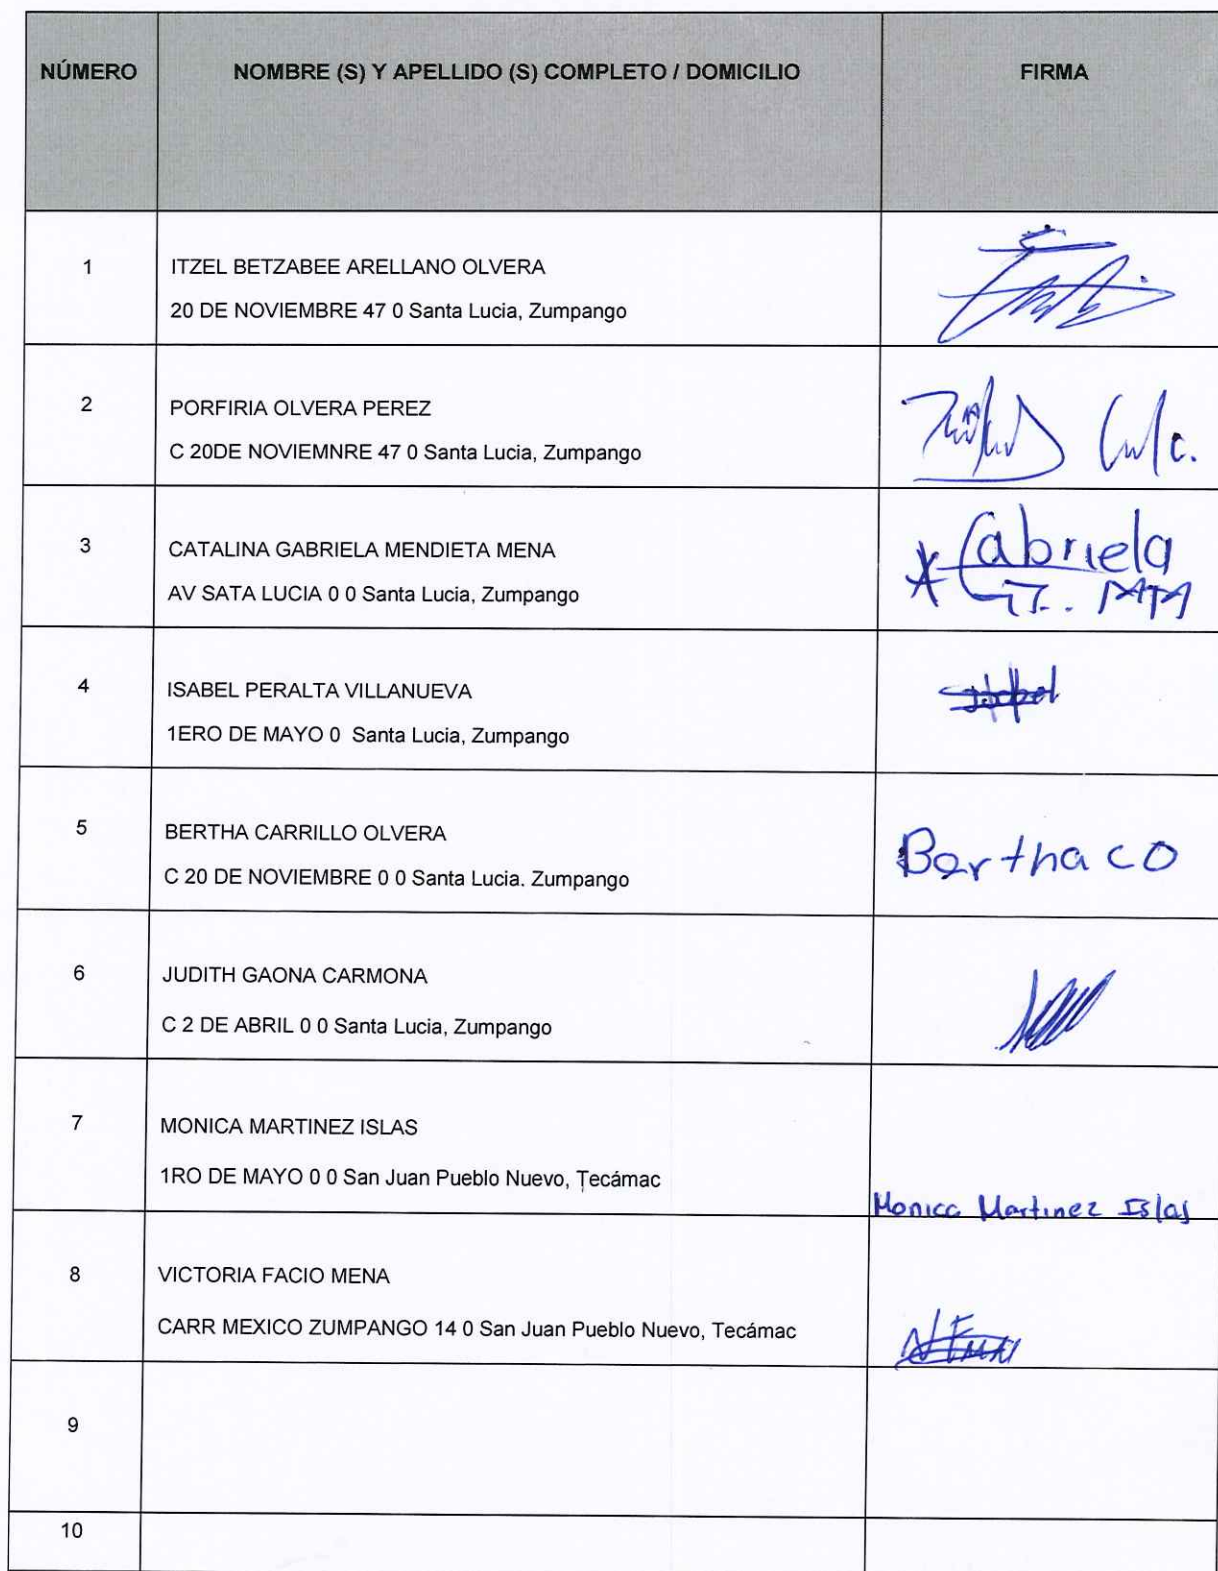 NÚMERO NOMBRE (S) Y APELLIDO (S) COMPLETO / DOMICILIO FIRMA
1 ITZEL BETZABEE ARELLANO OLVERA
20 DE NOVIEMBRE 47 0 Santa Lucia, Zumpango
2 PORFIRIA OLVERA PEREZ
C 20DE NOVIEMNRE 47 0 Santa Lucia, Zumpango
3 CATALINA GABRIELA MENDIETA MENA
Gabriela
AV SATA LUCIA 0 0 Santa Lucia, Zumpango
4 ISABEL PERALTA VILLANUEVA
Isabel
1ERO DE MAYO 0 Santa Lucia, Zumpango
5 BERTHA CARRILLO OLVERA
Bertha CO
C 20 DE NOVIEMBRE 0 0 Santa Lucia. Zumpango
6 JUDITH GAONA CARMONA
C 2 DE ABRIL 0 0 Santa Lucia, Zumpango
7 MONICA MARTINEZ ISLAS
1RO DE MAYO 0 0 San Juan Pueblo Nuevo, Tecámac
Monica Martinez Islas
8 VICTORIA FACIO MENA
CARR MEXICO ZUMPANGO 14 0 San Juan Pueblo Nuevo, Tecámac
9
10